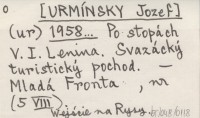 o [URMÍNSKY Jozef]
(ur) 1958... Po stopách
V. I. Lenina. Svazácký
turistický pochod. –
Mladá Fronta, nr
(5 VIII)
Wejście na Rysy.